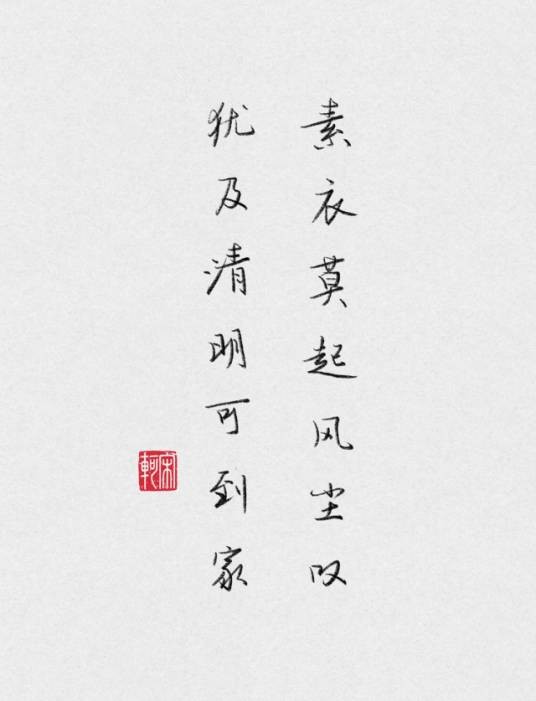 素衣莫起风尘叹
犹及清明可到家
宋軻